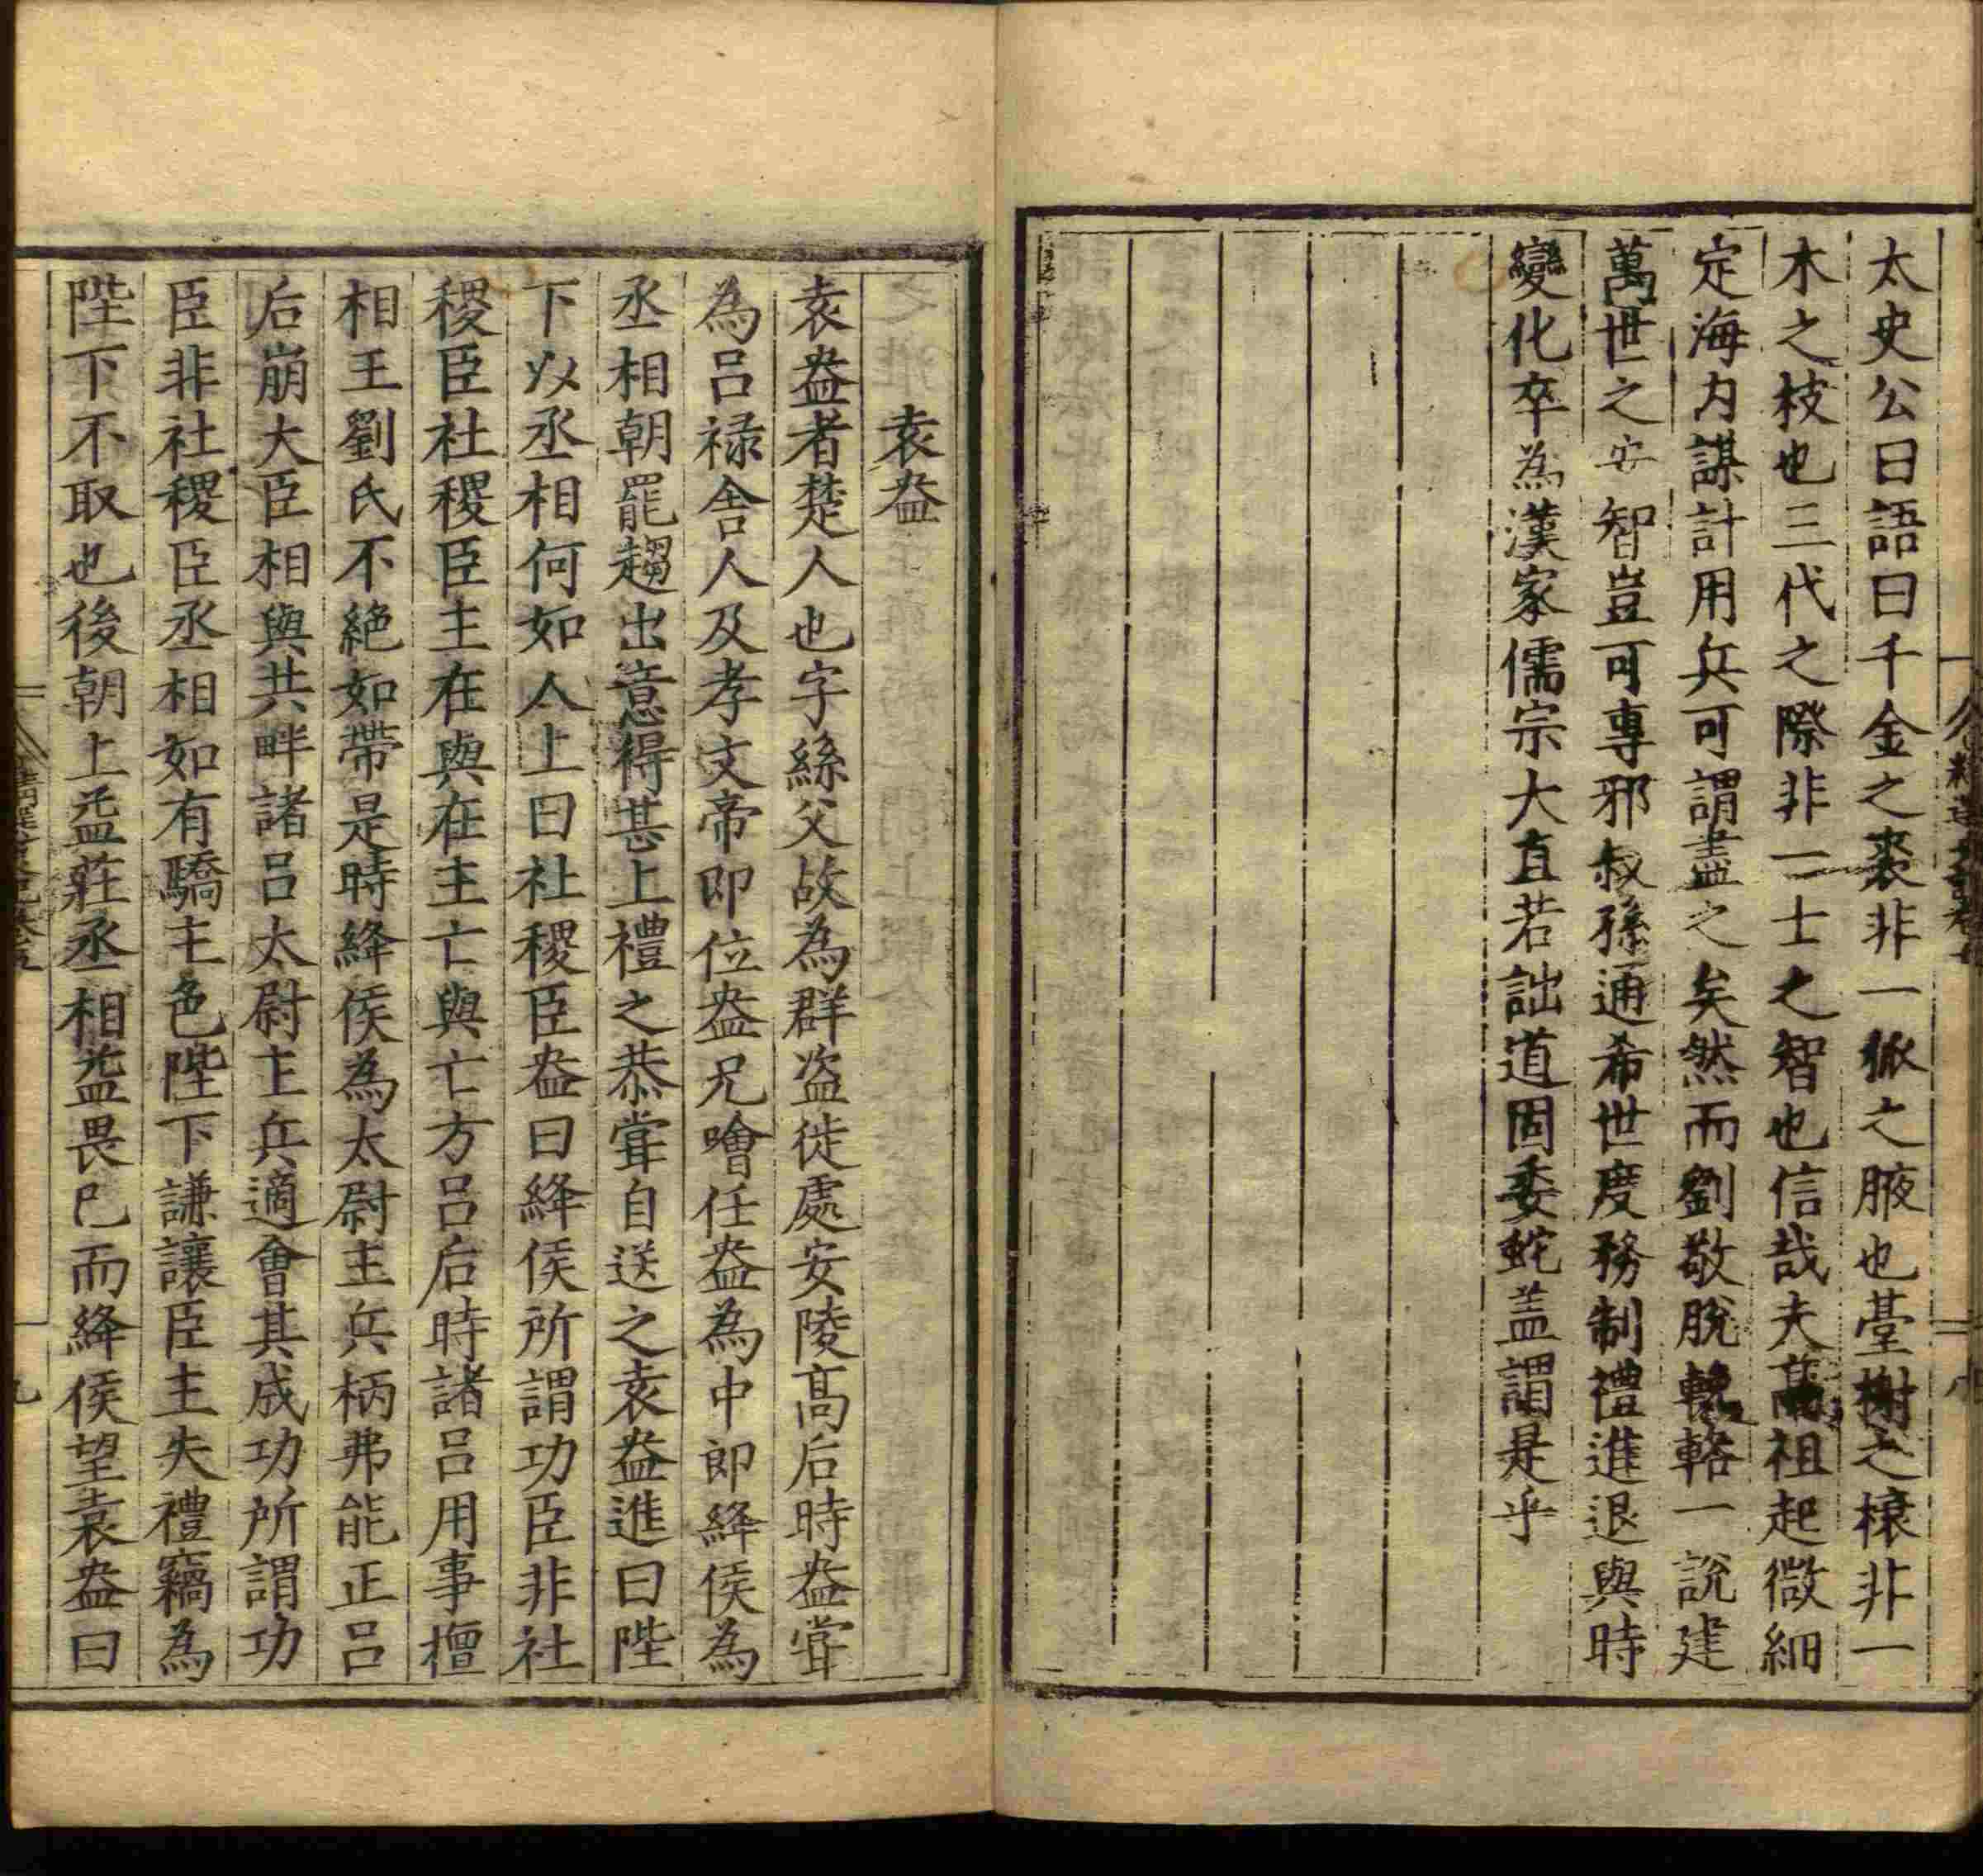 太史公曰語曰千金之裘非一狐之腋也臺榭之榱非一
木之枝也三代之際非一士之智也信哉夫高祖起微細
定海内謀計用兵可謂盡之矣然而劉敬脫輓輅一說建
萬世之安智豈可專邪叔孫通希世度務制禮進退與時
變化卒為漢家儒宗大直若詘道固委蛇蓋謂是乎
袁盎
袁盎者楚人也字絲父故為群盗徙處安陵高后時盎甞
為呂禄舍人及孝文帝即位盎兄噲任盎為中郎絳侯為
丞相朝罷趨出意得甚上禮之恭甞自送之袁盎進曰陛
下以丞相何如人上曰社稷臣盎曰絳侯所謂功臣非社
稷臣社稷臣主在與在主亡與亡方呂后時諸呂用事擅
相王劉氏不絶如帶是時絳侯為太尉主兵柄弗能正呂
后崩大臣相與共畔諸呂太尉主兵適會其成功所謂功
臣非社稷臣丞相如有驕主色陛下謙讓臣主失禮竊為
陛下不取也後朝上益莊丞相益畏已而絳侯望袁盎曰